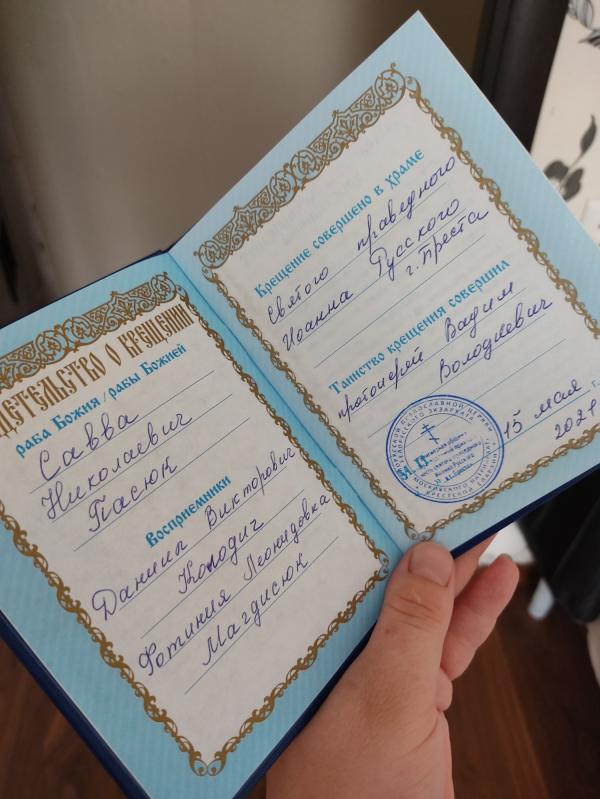 ДЕТЕЛЬСТВО О КРЕЩЕНИИ
раба Божия / рабы Божией
Савва
Николаевич
Пасюк
Восприемники
Даниил Викторович
Колодич
Фотиния Леонидовна
Магдисюк
Крещение совершено в храме
Святого праведного
Иоанна Русского
г. Бреста
Таинство крещения совершил
протоиерей Вадим
Володкевич
15 мая г.
2021